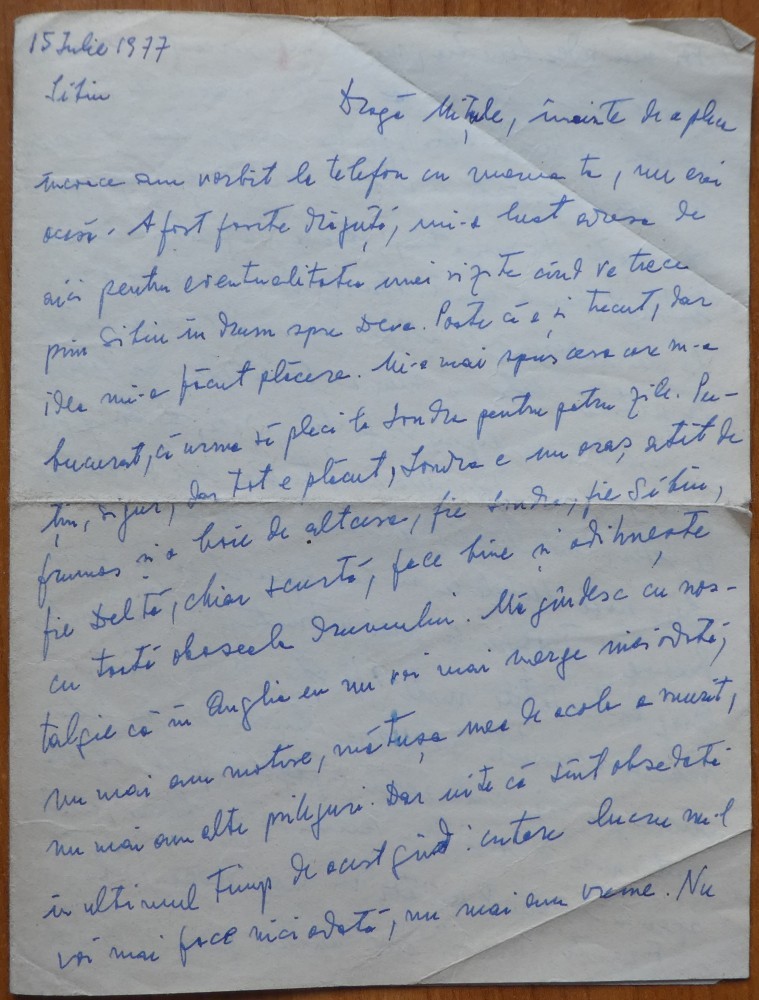 15 Iulie 1977
Sibiu
Dragă Mițule, înainte de a pleca
încoace am vorbit la telefon cu mama ta, nu erai
acasă. A fost foarte drăguță, mi-a luat adresa de
aici pentru eventualitatea unei vizite când va trece
prin Sibiu în drum spre Deva. Poate că a și trecut, dar
idea mi-a făcut plăcere. Mi-a mai spus ceva care m-a
bucurat, că urma să pleci la Londra pentru patru zile. Pu-
țin, sigur, dar tot e plăcut, Londra e un oraș atît de
frumos și o baie de altceva, fie Londra, fie Sibiu,
fie Deltă, chiar scurtă, face bine și odihnește
cu toată oboseala drumului. Mă gîndesc cu nos-
talgie că în Anglia eu nu voi mai merge niciodată,
nu mai am motive, mătușa mea de acolo a murit,
nu mai am alte prilejuri. Dar uite că sînt obsedată
în ultimul timp de acest gînd: cutare lucru nu-l
voi mai face niciodată, nu mai am vreme. Nu